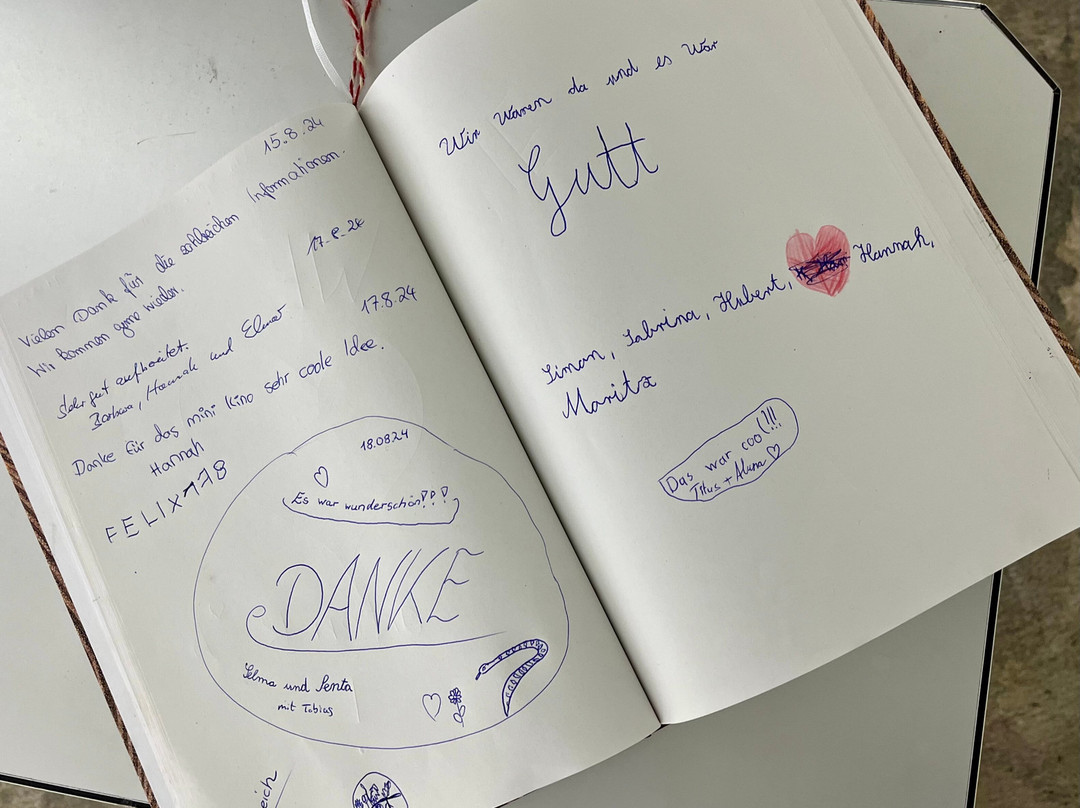 15.8.24
Vielen Dank für die zahlreichen Informationen.
Wir kommen gerne wieder.
17.8.24
Sehr gut aufbereitet.
Barbara, Hannah und Elmar
17.8.24
Danke für das mini Kino sehr coole Idee.
Hannah
FELIX178
18.0824
Es war wunderschön!!!
DANKE
Selma und Senta
mit Tobias
eich
Wir waren da und es war
Gutt
Siman, Sabrina, Hubert, Hannah,
Moritz
Das war cool!!!
Titus + Aluna